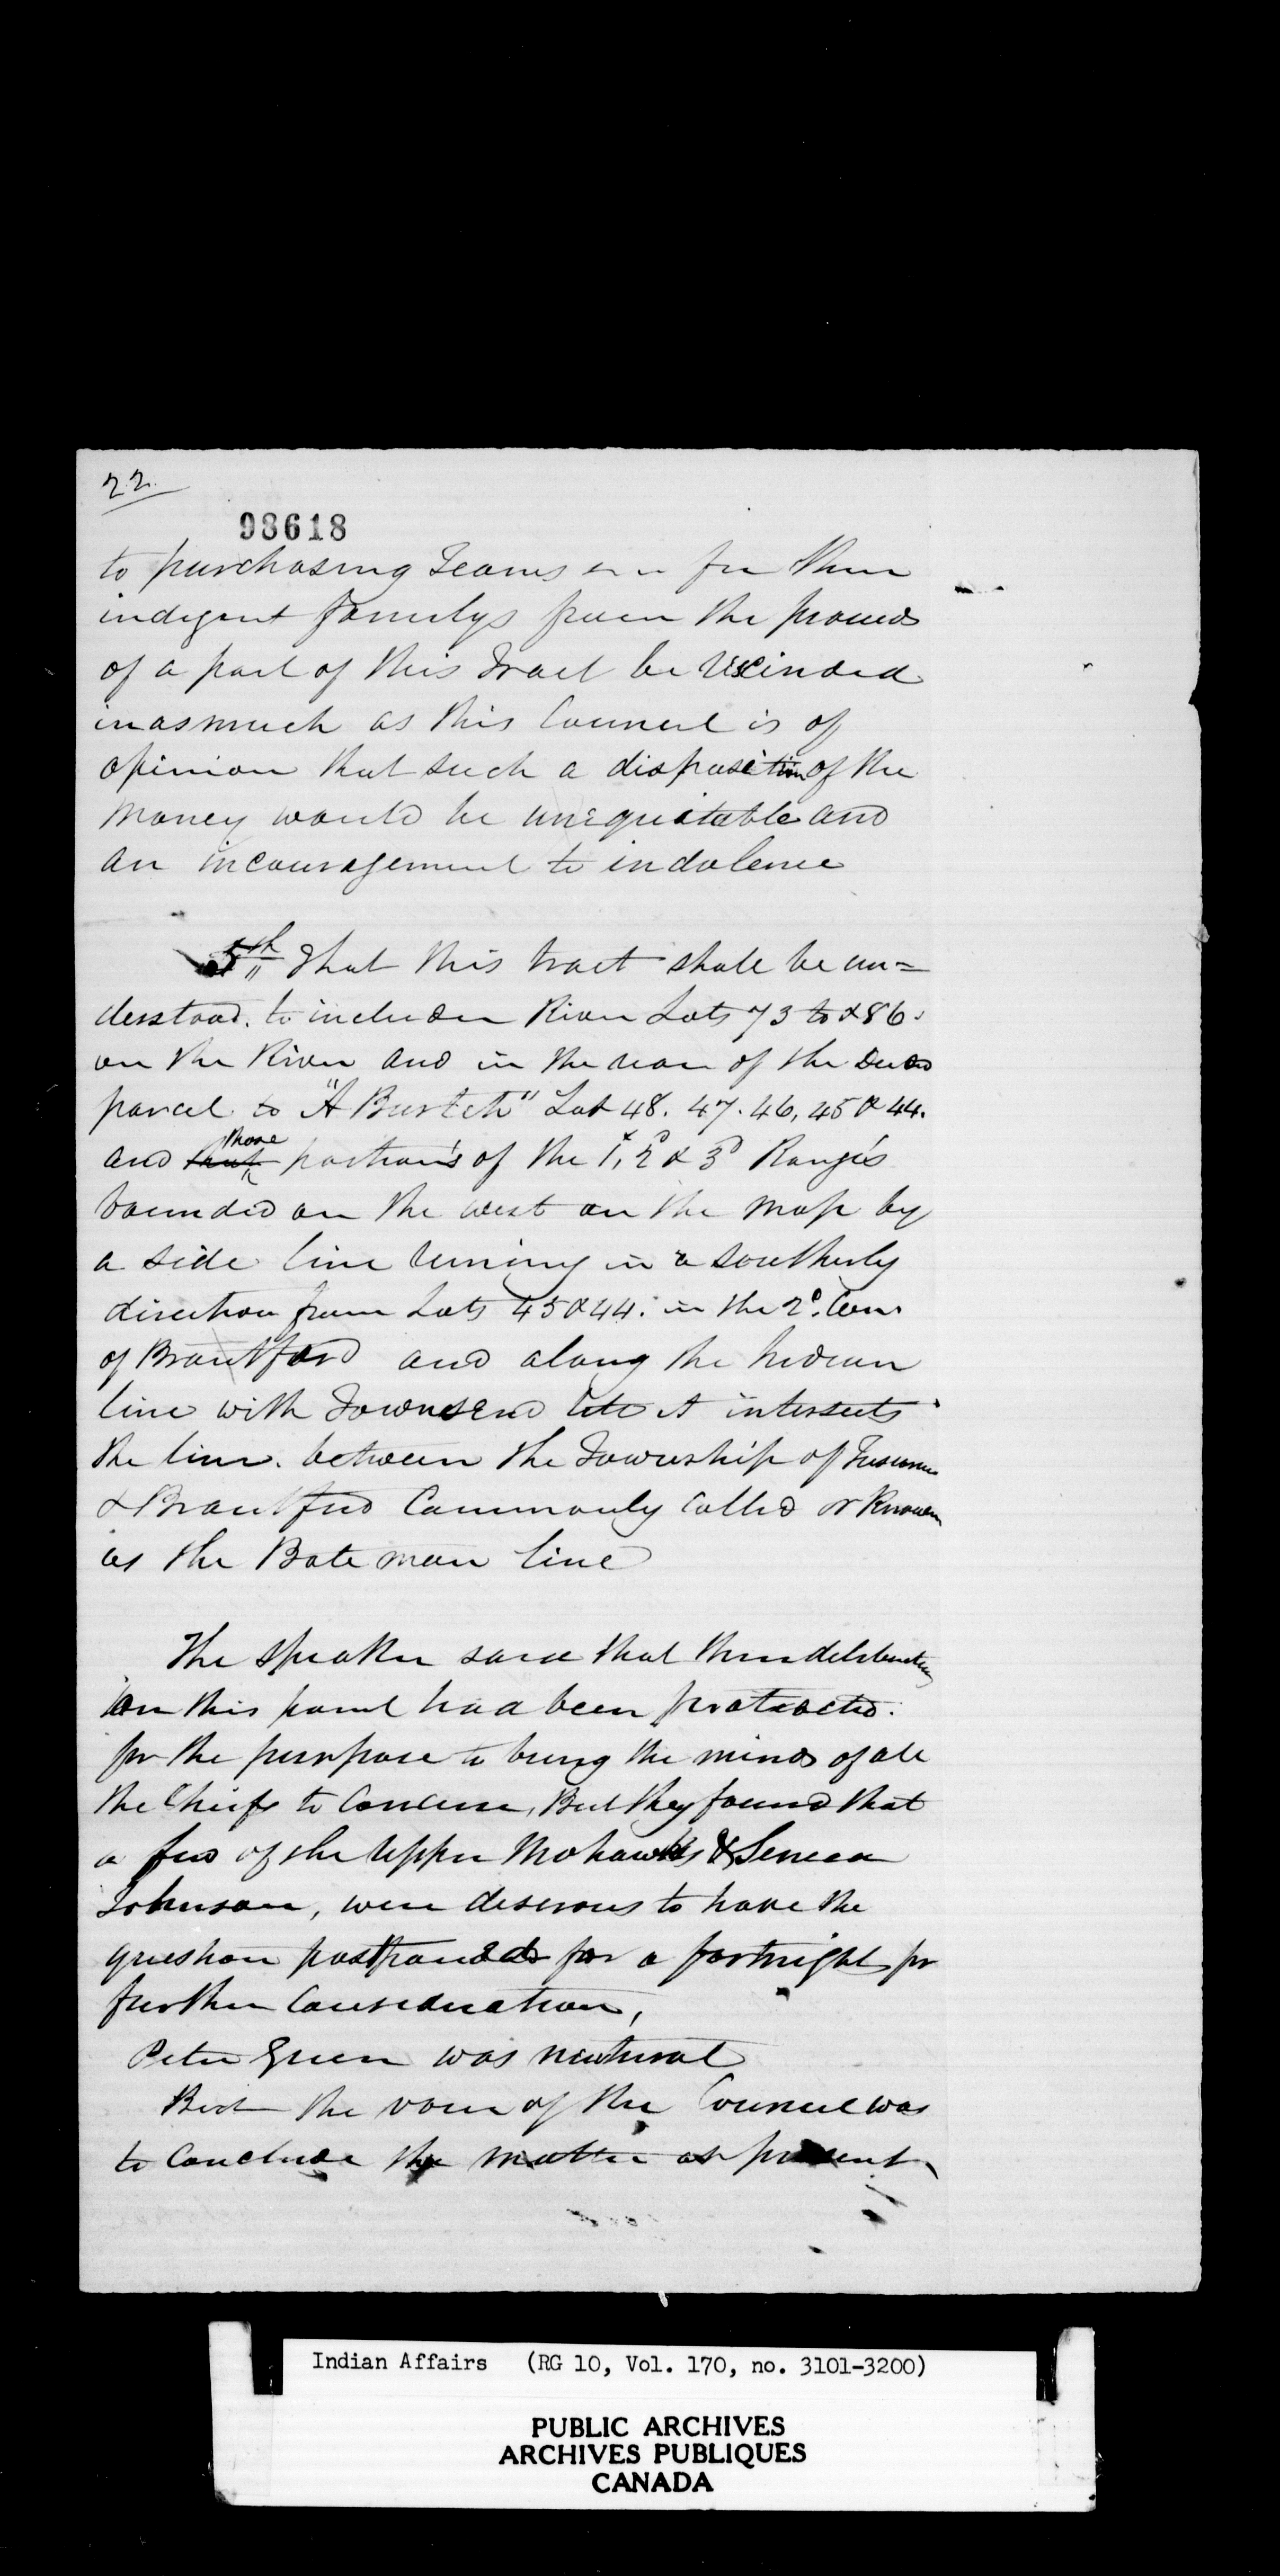 22
98618
to purchasing Teams for them
indigent familys from the proceeds
of a part of this Tract be recinded
inasmuch as this Council is of
opinion that such a disposition of the
money would be unequitable and
an incouragement to indolence
5th That this tract shall be un=
derstood to include River Lots 73 to 86
on the River and in the rear of the Deed
parcel to "A Burtch" Lot 48. 47. 46, 45 & 44.
and those portion's of the 1st, 2d & 3d Range's
bounded on the west on the map by
a side line runing in a southerly
direction from Lots 45 & 44. in the 2d. Con.
of Brantford and along the Indian
line with Townsend till it intersects
the line between the Township of Tuscarora
& Brantford Commonly called or known
as the Bateman line
The Speaker said that their deliberation
on this point had been protracted
for the purpose to bring the minds of all
the Chiefs to concur, But they found that
a few of the Upper Mohawks & Seneca
Johnson, were desirous to have the
question postponed for a fortnight for
further Consideration,
Peter Green was neutural
But the voice of the Council was
to Conclude the matter at present
Indian Affairs (RG 10, Vol. 170, no. 3101-3200)
PUBLIC ARCHIVES
ARCHIVES PUBLIQUES
CANADA